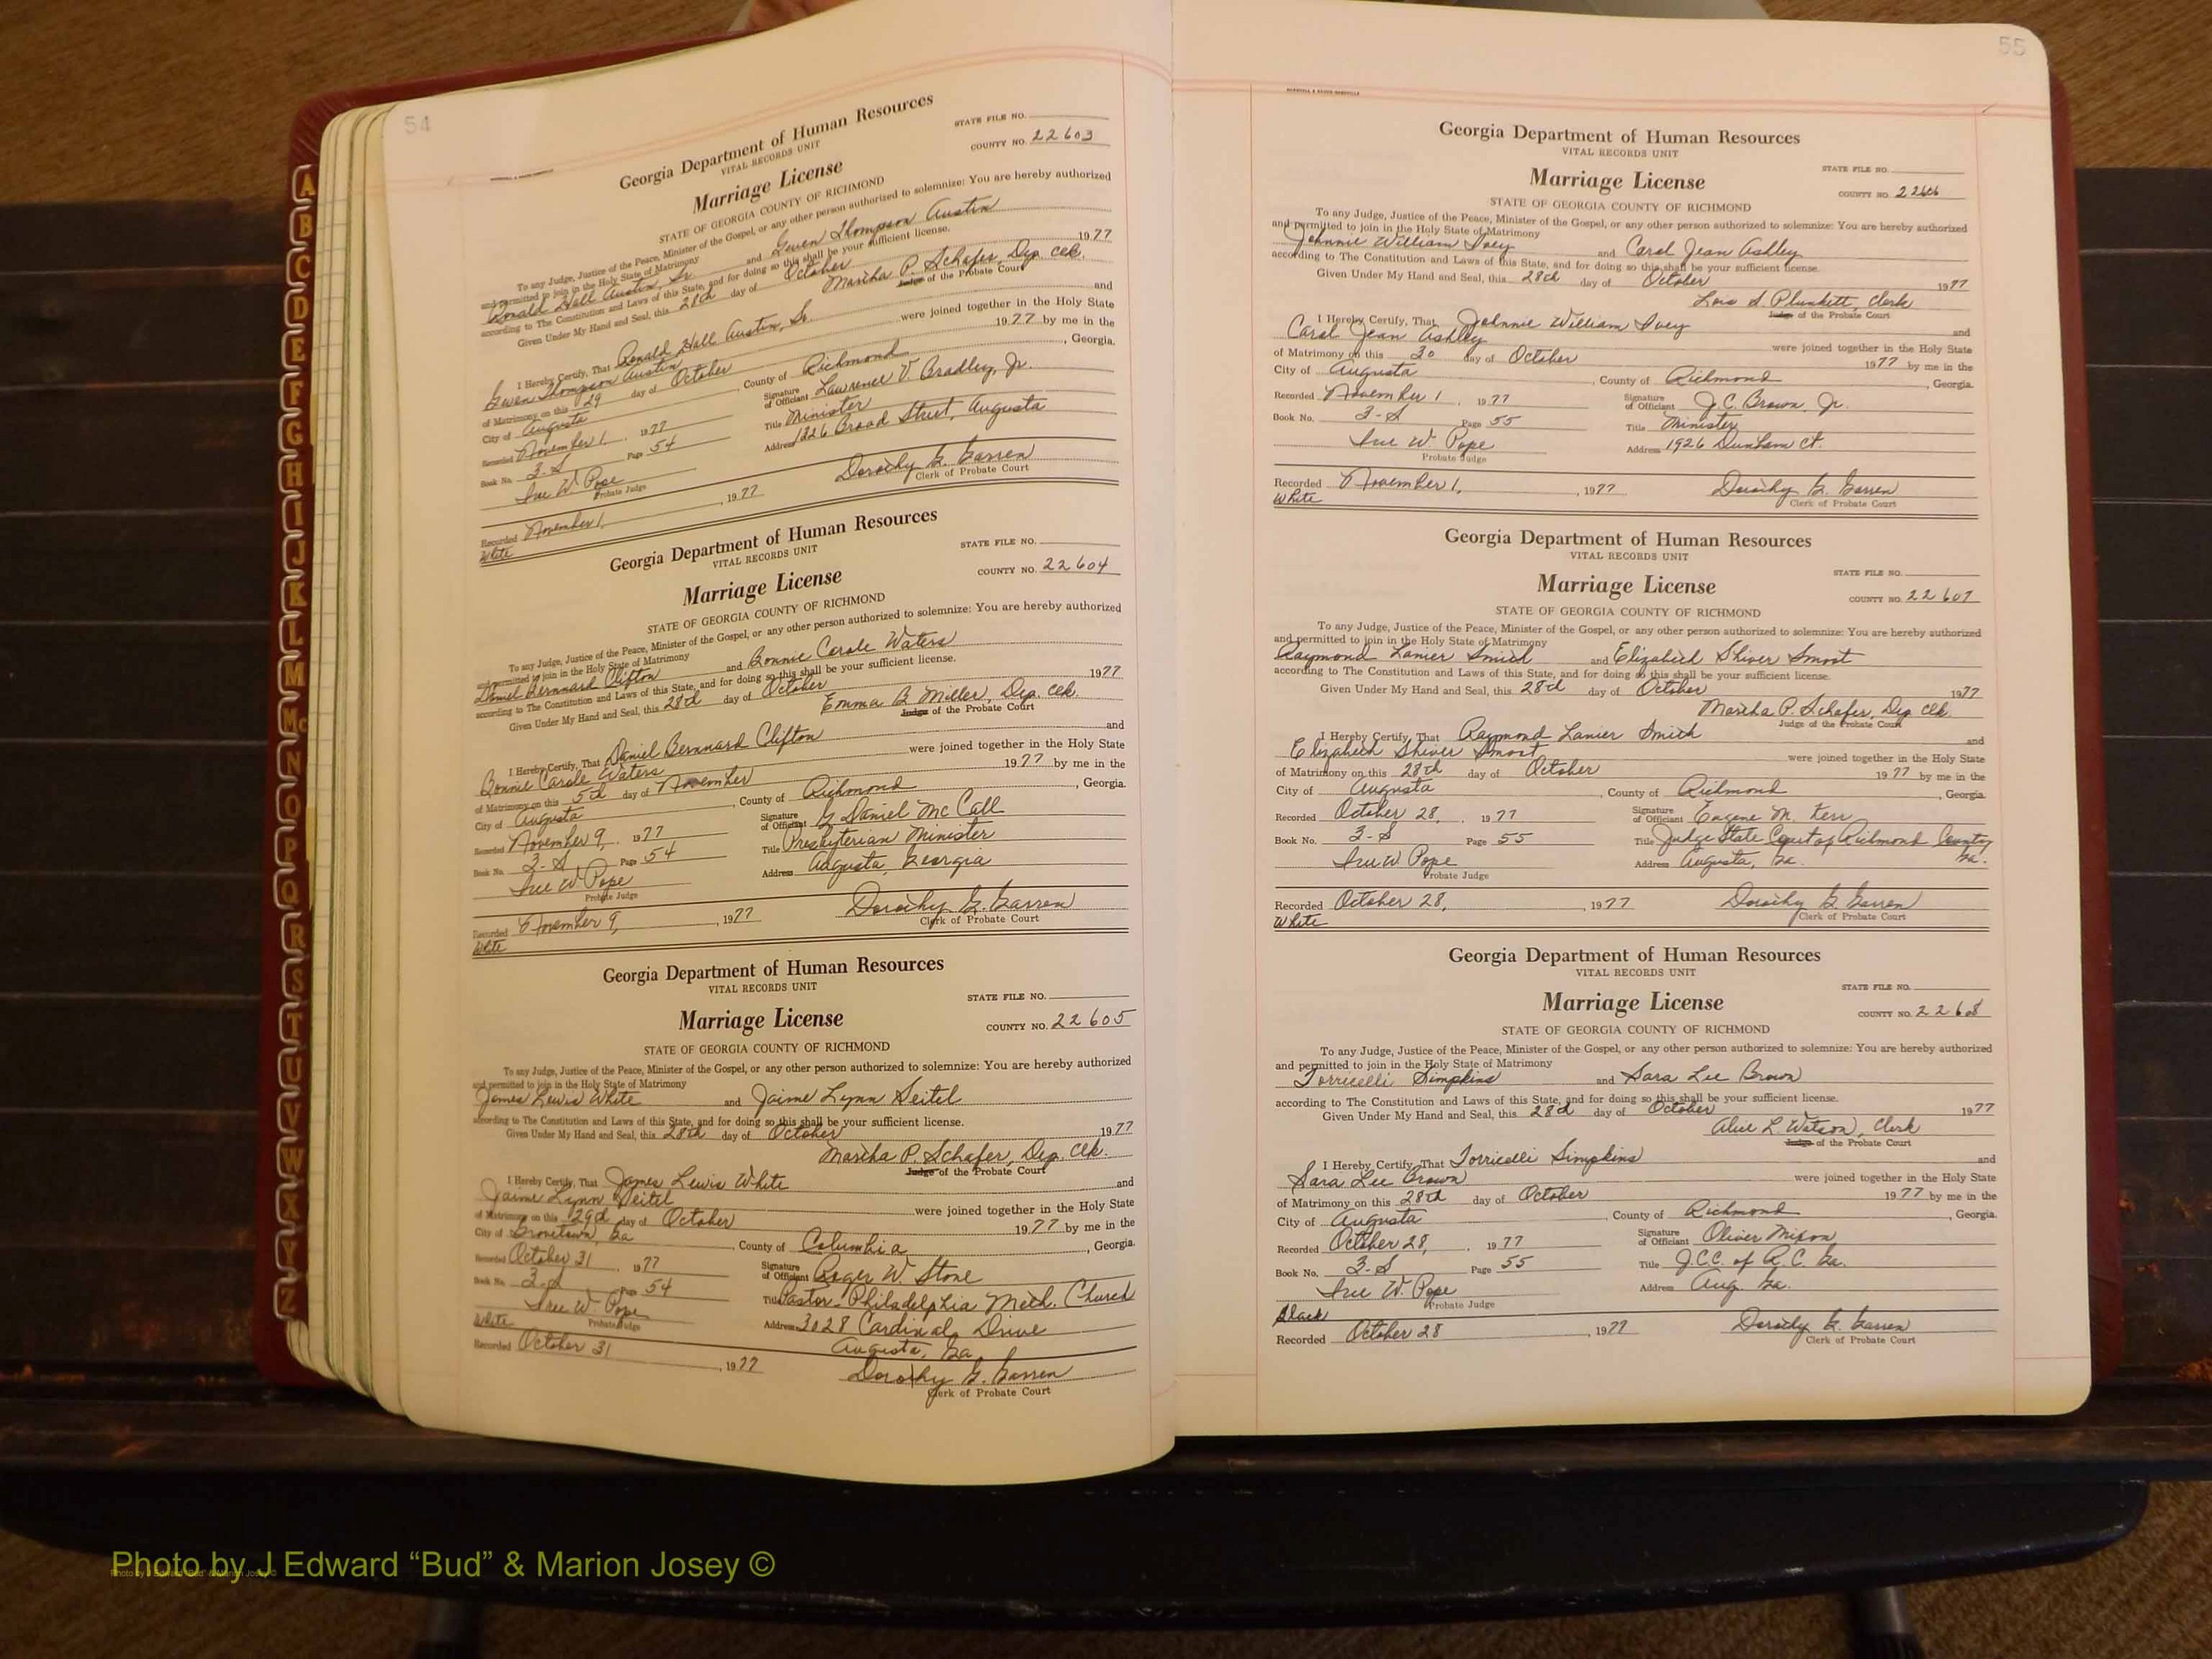 54
Georgia Department of Human Resources
VITAL RECORDS UNIT
STATE FILE NO.
Marriage License
COUNTY NO. 22603
STATE OF GEORGIA COUNTY OF RICHMOND
To any Judge, Justice of the Peace, Minister of the Gospel, or any other person authorized to solemnize: You are hereby authorized
and permitted to join in the Holy State of Matrimony
Ronald Hall Austin, Sr. and Gwen Thompson Austin
according to The Constitution and Laws of this State, and for doing so this shall be your sufficient license.
Given Under My Hand and Seal, this 28th day of October 1977
Martha P. Schafer, Dep. Clk.
Judge of the Probate Court
I Hereby Certify, That Ronald Hall Austin, Sr. and
Gwen Thompson Austin were joined together in the Holy State
of Matrimony on this 29 day of October 1977 by me in the
City of Augusta, County of Richmond, Georgia.
Recorded November 1, 1977 Signature of Officiant Lawrence V. Bradley, Jr.
Book No. 3-S Page 54 Title Minister
Iree W. Pope Address 1226 Broad Street, Augusta
Probate Judge
Recorded November 1, 1977 Dorothy G. Garren
White Clerk of Probate Court
Georgia Department of Human Resources
VITAL RECORDS UNIT
STATE FILE NO.
Marriage License
COUNTY NO. 22604
STATE OF GEORGIA COUNTY OF RICHMOND
To any Judge, Justice of the Peace, Minister of the Gospel, or any other person authorized to solemnize: You are hereby authorized
and permitted to join in the Holy State of Matrimony
Daniel Bernnard Clifton and Bonnie Carole Waters
according to The Constitution and Laws of this State, and for doing so this shall be your sufficient license.
Given Under My Hand and Seal, this 28th day of October 1977
Emma B. Miller, Dep. Clk.
Judge of the Probate Court
I Hereby Certify, That Daniel Bernnard Clifton and
Bonnie Carole Waters were joined together in the Holy State
of Matrimony on this 5th day of November 1977 by me in the
City of Augusta, County of Richmond, Georgia.
Recorded November 9, 1977 Signature of Officiant G. Daniel McCall
Book No. 3-S Page 54 Title Presbyterian Minister
Iree W. Pope Address Augusta, Georgia
Probate Judge
Recorded November 9, 1977 Dorothy G. Garren
White Clerk of Probate Court
Georgia Department of Human Resources
VITAL RECORDS UNIT
STATE FILE NO.
Marriage License
COUNTY NO. 22605
STATE OF GEORGIA COUNTY OF RICHMOND
To any Judge, Justice of the Peace, Minister of the Gospel, or any other person authorized to solemnize: You are hereby authorized
and permitted to join in the Holy State of Matrimony
James Lewis White and Jaime Lynn Seitel
according to The Constitution and Laws of this State, and for doing so this shall be your sufficient license.
Given Under My Hand and Seal, this 28th day of October 1977
Martha P. Schafer, Dep. Clk.
Judge of the Probate Court
I Hereby Certify, That James Lewis White and
Jaime Lynn Seitel were joined together in the Holy State
of Matrimony on this 29th day of October 1977 by me in the
City of Grovetown, Ga, County of Columbia, Georgia.
Recorded October 31, 1977 Signature of Officiant Roger W. Stone
Book No. 3-S Page 54 Title Pastor-Philadelphia Meth. Church
Iree W. Pope Address 3028 Cardinal Drive
White Probate Judge Augusta, Ga.
Recorded October 31 1977 Dorothy G. Garren
Clerk of Probate Court
55
Georgia Department of Human Resources
VITAL RECORDS UNIT
STATE FILE NO.
Marriage License
COUNTY NO. 22606
STATE OF GEORGIA COUNTY OF RICHMOND
To any Judge, Justice of the Peace, Minister of the Gospel, or any other person authorized to solemnize: You are hereby authorized
and permitted to join in the Holy State of Matrimony
Johnnie William Ivey and Carol Jean Ashley
according to The Constitution and Laws of this State, and for doing so this shall be your sufficient license.
Given Under My Hand and Seal, this 28th day of October 1977
Lois S. Plunkett, Clerk
Judge of the Probate Court
I Hereby Certify, That Johnnie William Ivey and
Carol Jean Ashley were joined together in the Holy State
of Matrimony on this 30 day of October 1977 by me in the
City of Augusta, County of Richmond, Georgia.
Recorded November 1, 1977 Signature of Officiant J.C. Brown, Jr.
Book No. 3-S Page 55 Title Minister
Iree W. Pope Address 1926 Dunham Ct.
Probate Judge
Recorded November 1, 1977 Dorothy G. Garren
White Clerk of Probate Court
Georgia Department of Human Resources
VITAL RECORDS UNIT
STATE FILE NO.
Marriage License
COUNTY NO. 22607
STATE OF GEORGIA COUNTY OF RICHMOND
To any Judge, Justice of the Peace, Minister of the Gospel, or any other person authorized to solemnize: You are hereby authorized
and permitted to join in the Holy State of Matrimony
Raymond Lanier Smith and Elizabeth Shiver Smoot
according to The Constitution and Laws of this State, and for doing so this shall be your sufficient license.
Given Under My Hand and Seal, this 28th day of October 1977
Martha P. Schafer, Dep Clk.
Judge of the Probate Court
I Hereby Certify, That Raymond Lanier Smith and
Elizabeth Shiver Smoot were joined together in the Holy State
of Matrimony on this 28th day of October 1977 by me in the
City of Augusta, County of Richmond, Georgia.
Recorded October 28, 1977 Signature of Officiant Eugene M. Kerr
Book No. 3-S Page 55 Title Judge State Court of Richmond County Ga.
Iree W. Pope Address Augusta, Ga.
Probate Judge
Recorded October 28, 1977 Dorothy G. Garren
White Clerk of Probate Court
Georgia Department of Human Resources
VITAL RECORDS UNIT
STATE FILE NO.
Marriage License
COUNTY NO. 22608
STATE OF GEORGIA COUNTY OF RICHMOND
To any Judge, Justice of the Peace, Minister of the Gospel, or any other person authorized to solemnize: You are hereby authorized
and permitted to join in the Holy State of Matrimony
Torricelli Simpkins and Sara Lee Brown
according to The Constitution and Laws of this State, and for doing so this shall be your sufficient license.
Given Under My Hand and Seal, this 28th day of October 1977
Alice L. Watson, Clerk
Judge of the Probate Court
I Hereby Certify, That Torricelli Simpkins and
Sara Lee Brown were joined together in the Holy State
of Matrimony on this 28th day of October 1977 by me in the
City of Augusta, County of Richmond, Georgia.
Recorded October 28, 1977 Signature of Officiant Oliver Mixon
Book No. 3-S Page 55 Title J.C.C. of R.C. Ga.
Iree W. Pope Address Aug. Ga.
Probate Judge
Black
Recorded October 28, 1977 Dorothy G. Garren
Clerk of Probate Court
A
B
C
D
E
F
G
H
I
J
K
L
M
Mc
N
O
P
Q
R
S
T
U
V
W
X
Y
Z
Photo by J Edward “Bud” & Marion Josey ©
Photo by J Edward "Bud" & Marion Josey ©